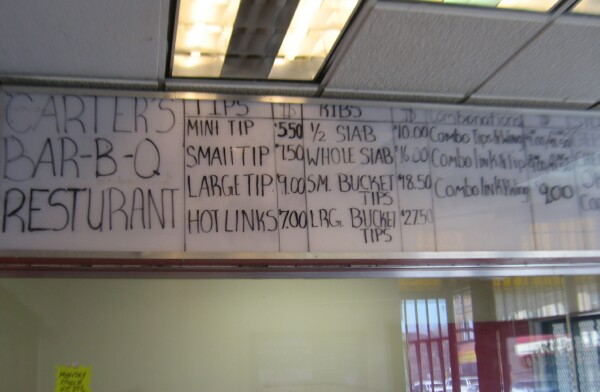 CARTER'S
BAR-B-Q
RESTURANT
TIPS
MINI TIP $5.50
SMALL TIP $7.50
LARGE TIP $9.00
HOT LINKS $7.00
RIBS
1/2 SLAB $10.00
WHOLE SLAB $16.00
SM. BUCKET $18.50
TIPS
LRG. BUCKET $27.50
TIPS
Combinations
Combo
Combo link
Combo link 9.00